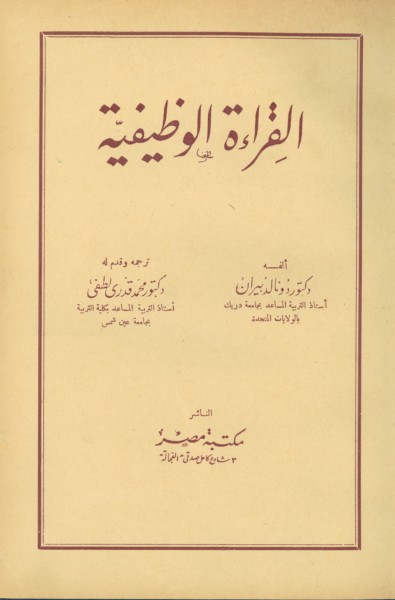 القِراءة الوظيفيّة
ألفــه
دكتور دونالد بيران
أستاذ التربية المساعد بجامعة دريك
بالولايات المتحدة
ترجمه وقدم له
دكتور محمد قدري لطفي
أستاذ التربية المساعد بكلية التربية
بجامعة عين شمس
الناشر
مكتبة مصر
٣ شارع كامل صدقي - الفجالة